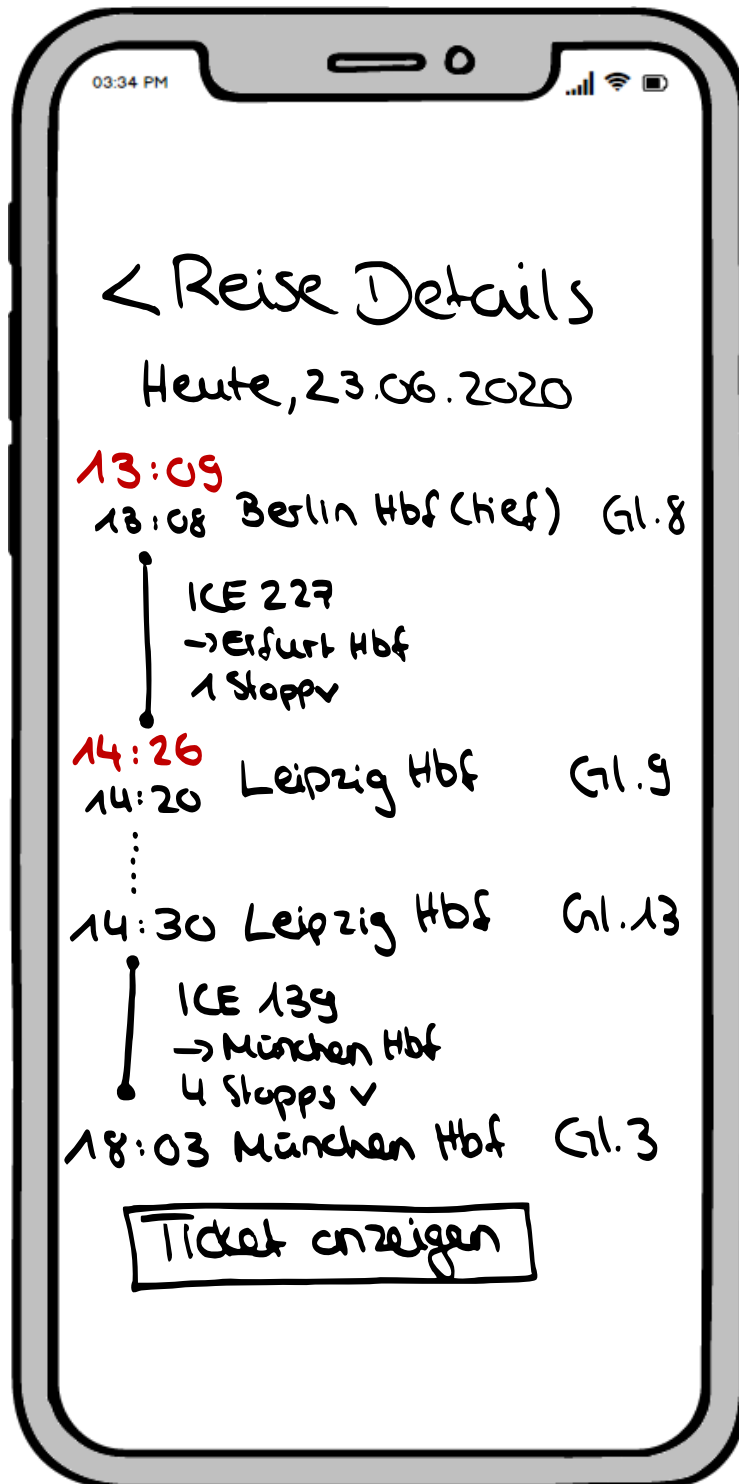 03:34 PM
< Reise Details
Heute, 23.06.2020
13:09
13:08 Berlin Hbf (tief) Gl.8
ICE 227
→ Erfurt Hbf
1 Stopp v
14:26
14:20 Leipzig Hbf Gl.9
14:30 Leipzig Hbf Gl.13
ICE 139
→ München Hbf
4 Stopps v
18:03 München Hbf Gl.3
Ticket anzeigen